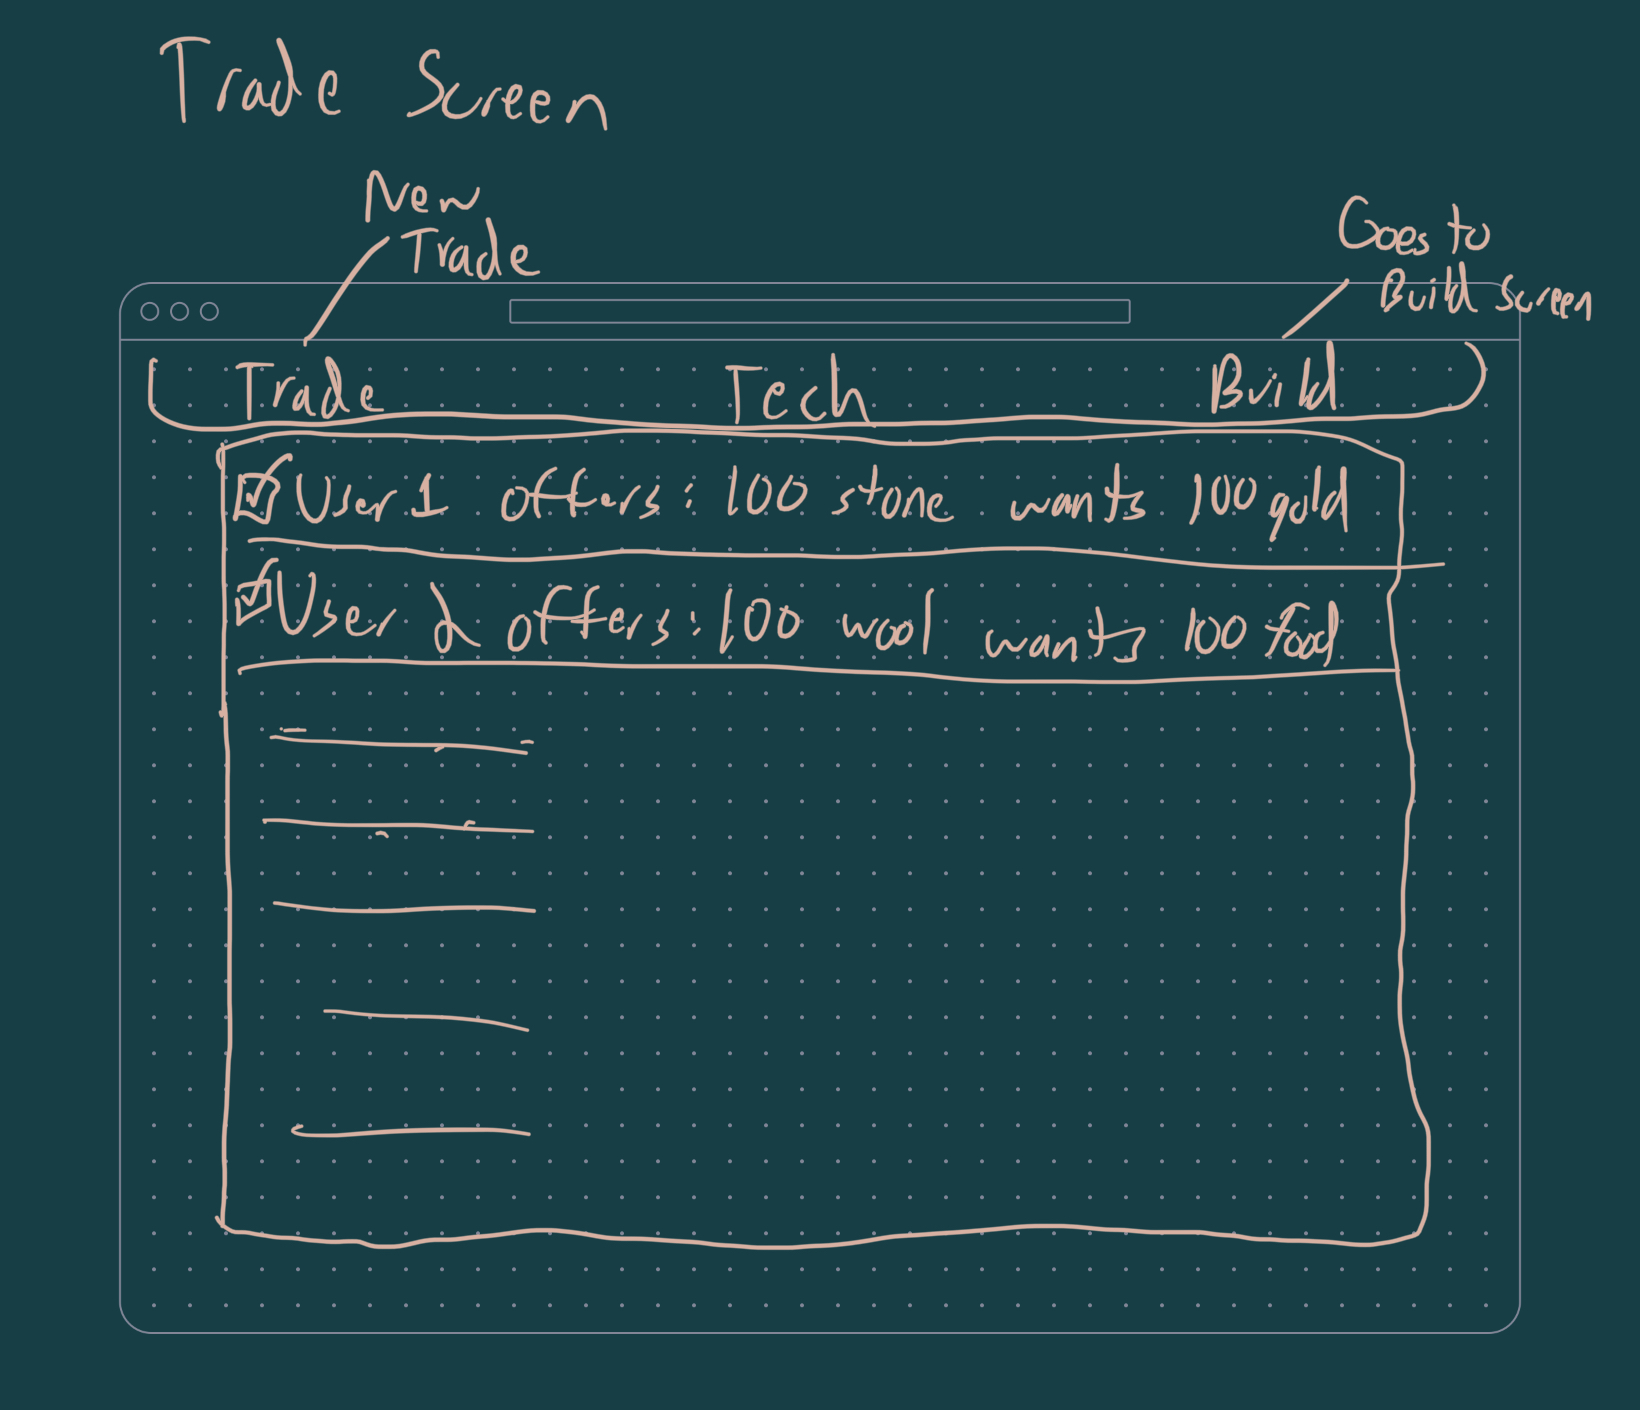 Trade Screen
New
Trade
Goes to
Build Screen
Trade Tech Build
User 1 offers: 100 stone wants 100 gold
User 2 offers: 100 wool wants 100 food